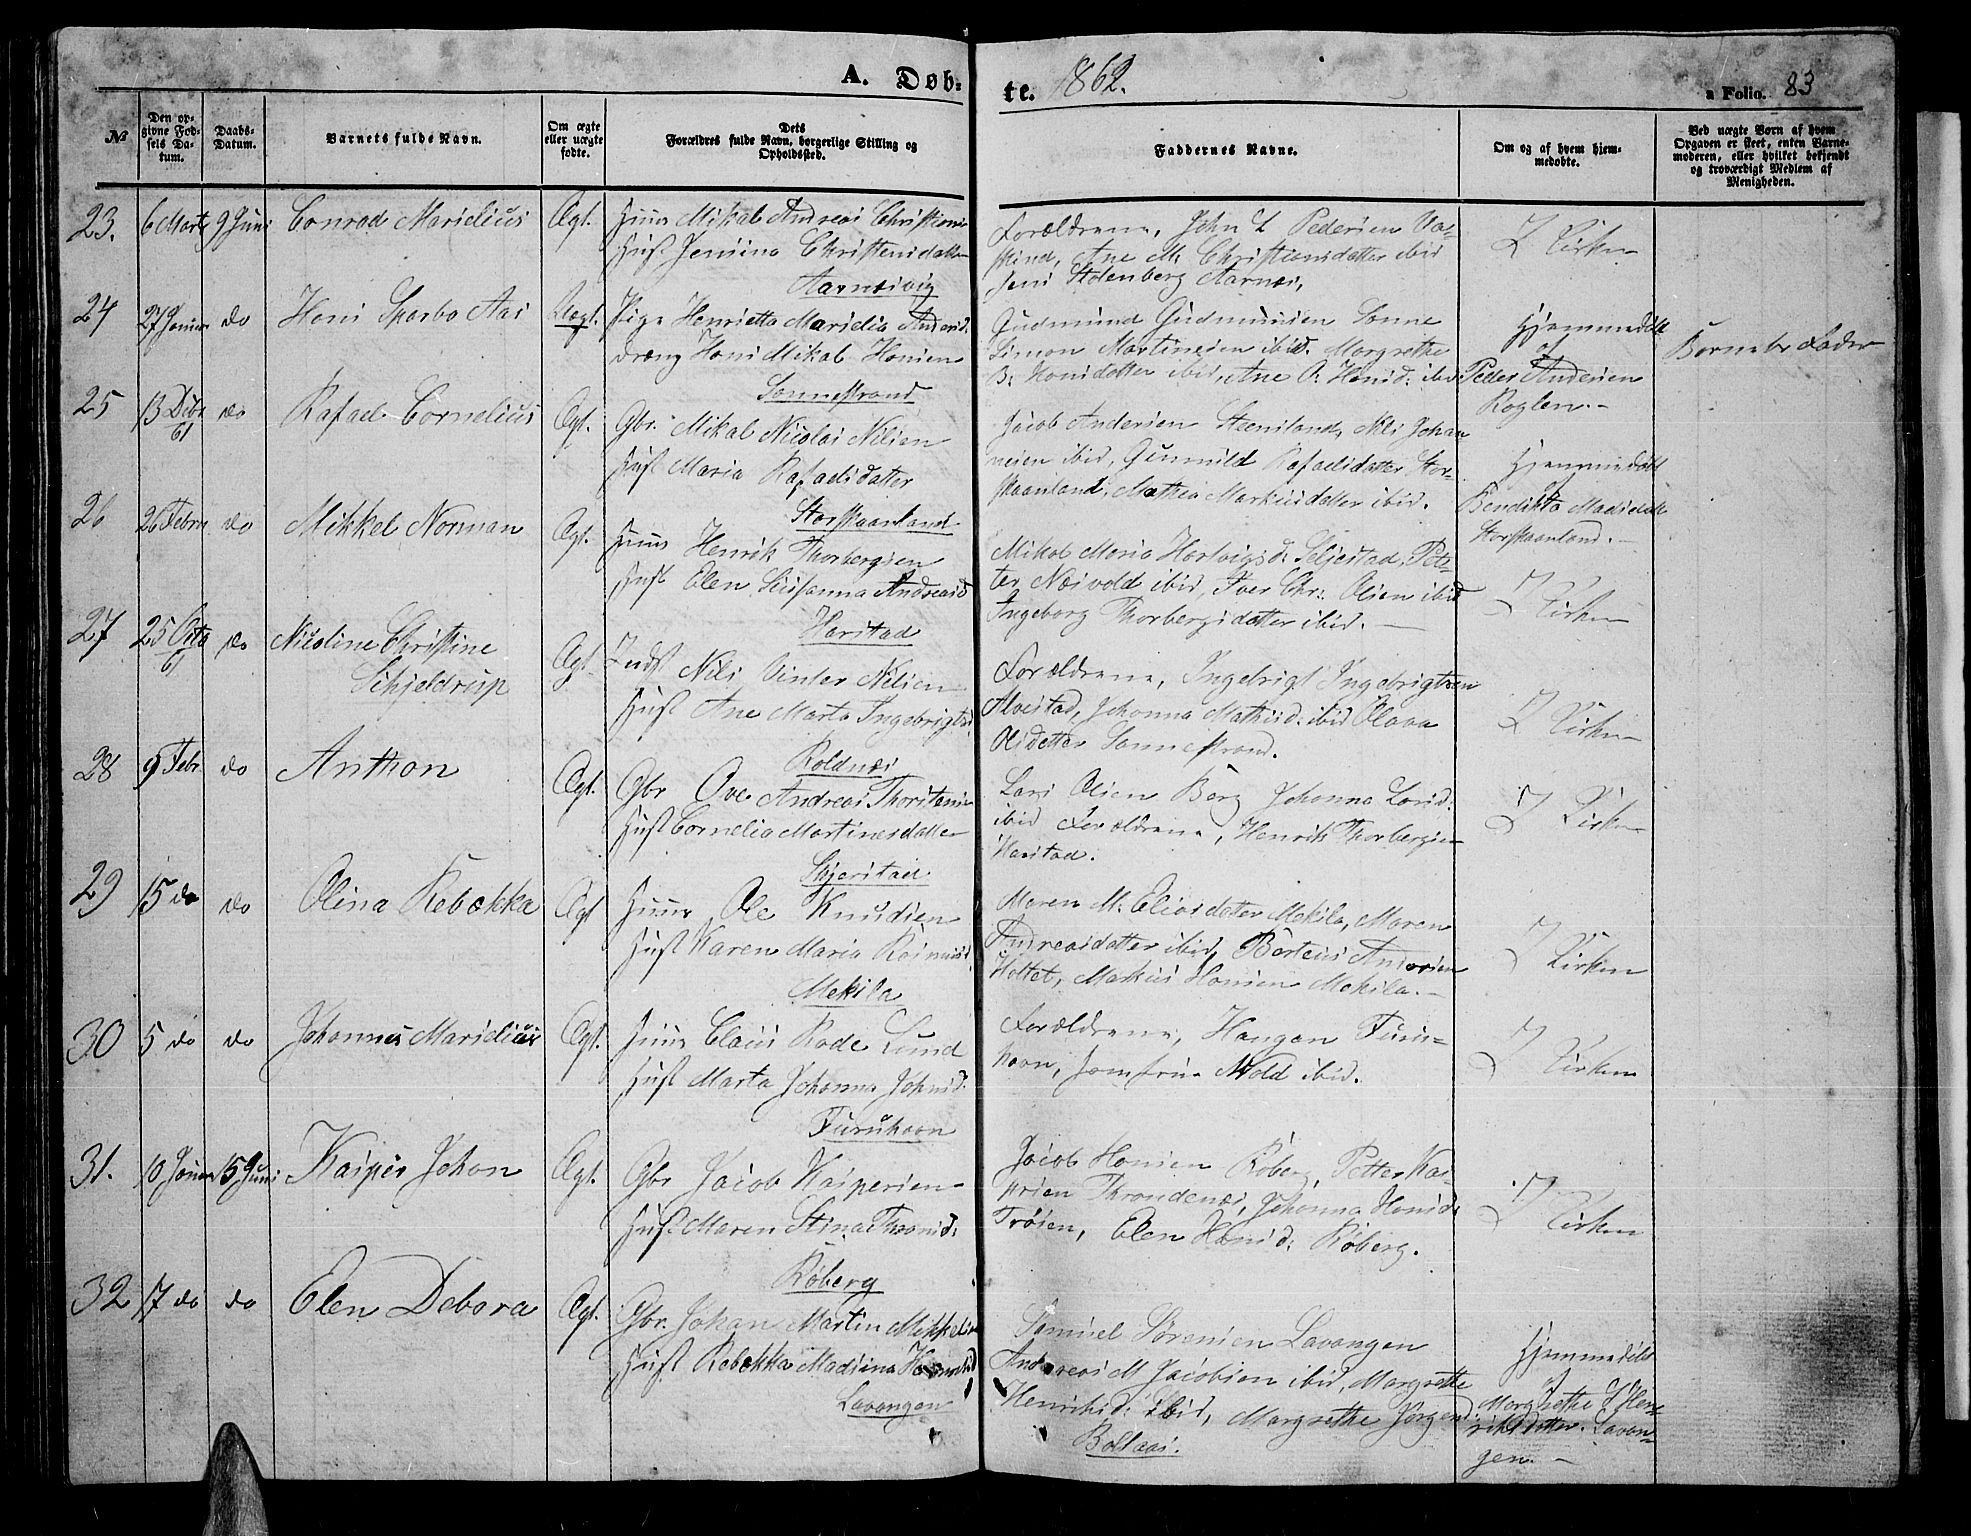 A. Døb-
te. 1862.
a Folio. 83
№
Den op-
givne Fød-
sels Da-
tum.
Daabs-
Datum.
Barnets fulde Navn.
Om ægte
eller uægte
fødte.
Dets
Forældres fulde Navn, borgerlige Stilling og
Opholdssted.
Faddernes Navne.
Om og af hvem hjem-
medøbte.
Ved uægte Børn af hvem
Opgaven er skeet, enten Barne-
moderen, eller hvilket bekjendt
og troværdigt Medlem af
Menigheden.
23. 6 Marts 9 Juni Conrad Maridius Ægt.
Huus Mikal Andreas Christians
Hust Jensine Christensdatter
Aarnesvig
Forældrene, John L Pedersen
Ane M. Christiansdatter ibid
Jens Stolenberg Aarnes,
I Kirken
24 27 Januar do Hans Sparbo Aas Uægt.
Pige Henrietta Maridia Andersd.
Dreng Hans Mikal Hansen
Sannestrand
Gudmund Gudmunsen Sanne
Simon Martinesen ibid. Margrethe
B. Hansdatter ibid, Ane O. Hansd: ibid
Hjemmedøbt
af
Peder Andersen
Roglen.-
Barnets Fader
25 13 Debr 61 do Rafael Cornelius Ægt.
Gbr. Mikal Nicolai Nilsen
Hust Maria Rafaelsdatter
Storskaanland
Jacob Andersen Steensland, Nils Johan
nesen ibid, Gunnild Rafaelsdatter Stor-
skaanland, Mathea Markusdatter ibid.
Hjemmedøbt
Bendikta Madsdatt
Storskaanland.-
26 26 Febru do Mikkel Norman Ægt.
Huus Henrik Thorbergsen
Hust Elen Susanna Andreasd
Harstad
Mikal Maria Hartvigsd. Seljestad, Pet-
ter Næsvold ibid, Iver Chr. Olsen ibid
Ingeborg Thorbergsdatter ibid.-
I Kirken
27 25 Octo 61 do Nicoline Christine
Schjeldrup
Ægt
Indst Nils Vinter Nilsen
Hust Ane Marta Ingebrigtsd.
Roldnes
Forældrene, Ingebrigt Ingebrigtsen
Alvestad, Johanna Mathisd. ibid Olava
Olsdatter Sannestrand.
I Kirken
28 9 Febr. do Anthon Ægt.
Gbr Ove Andreas Thorstensen
Hust Cornelia Martinesdatter
Skjerstad
Lars Olsen Berg Johanna Larsd.
ibid Forældrene, Henrik Thorbergsen
Harstad.
I Kirken
29 15 do do Olina Rebækka Ægt
Huus Ole Knudsen
Hust Karen Maria Rasmusd.
Mekila
Maren M. Eliasdatter Mekila, Maren
Andreasdatter ibid, Berteus Andersen
Holtet, Markus Hansen Mekila.-
I Kirken
30 5 do do Johannes Maridius Ægt.
Huus Claus Rode Lund
Hust Marta Johanna Johnsd.
Furuhavn
Forældrene, Haugan Furu-
havn, Jomfrue Mold ibid.
I Kirken
31. 10 Januar 15 Juni Kasper Johan Ægt.
Gbr Jacob Kaspersen
Hust Maren Stina Thronsd.
Røberg
Jacob Hansen Røberg, Petter Kas-
persen Throndenes, Johanna Hansd.
Trøsen, Elen Hansd: Røberg.
I Kirken
32 17 do do Elen Debora Ægt.
Gbr. Johan Martin Mikkelsen
Hust Rebækka Madsina
Lavangen
Samuel Sørensen Lavangen
Andreas M Jacobsen ibid, Margrethe
Henriksd: ibid, Margrethe Jørgensd.
Boltaas.
Hjemmedøbt
af
Margrethe I Hen-
riksdatter Lavan-
gen.-